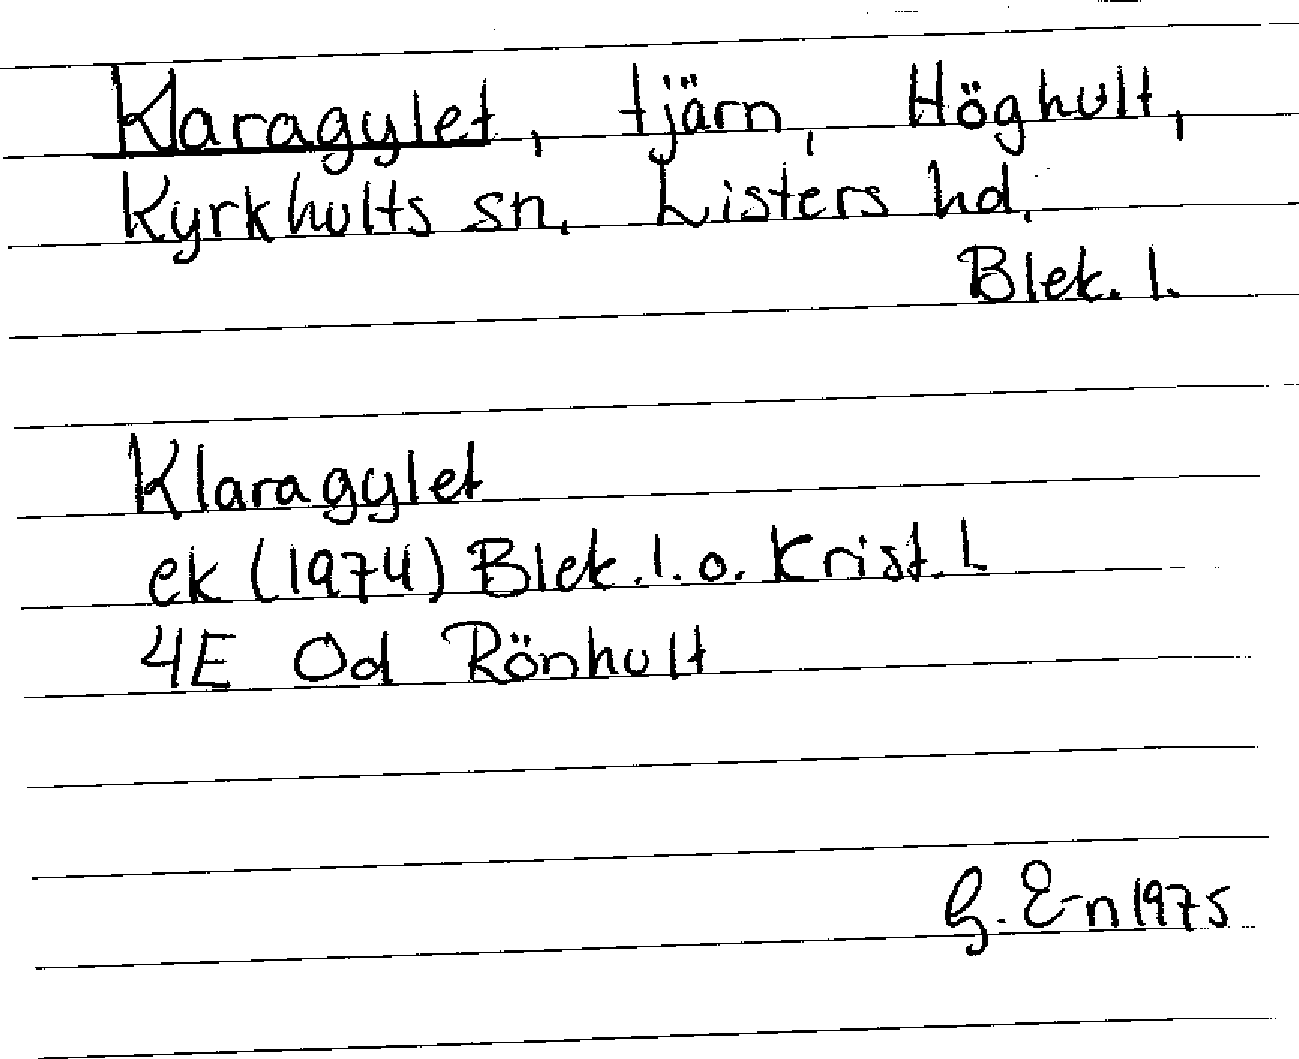 Klaragylet, tjärn, Höghult,
Kyrkhults sn, Listers hd.
Blek. l.
Klaragylet
ek (1974) Blek. l. o. Krist. L
4E Od Rönhult
G. E-n 1975